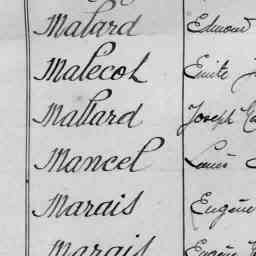 Malard Edmond
Malecot Emile
Mallard Joseph
Mancel Louis
Marais Eugène
Marais Eugène